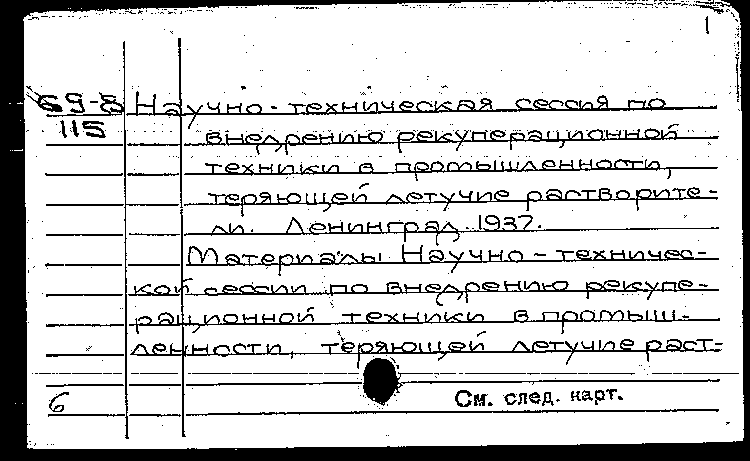 1
69-8 Научно-техническая сессия по
115
внедрению рекуперационной
техники в промышленности,
теряющей летучие растворите-
ли. Ленинград. 1937.
Материалы Научно-техничес-
кой сессии по внедрению рекупе-
рационной техники в промыш-
ленности, теряющей летучие раст-
6
См. след. карт.